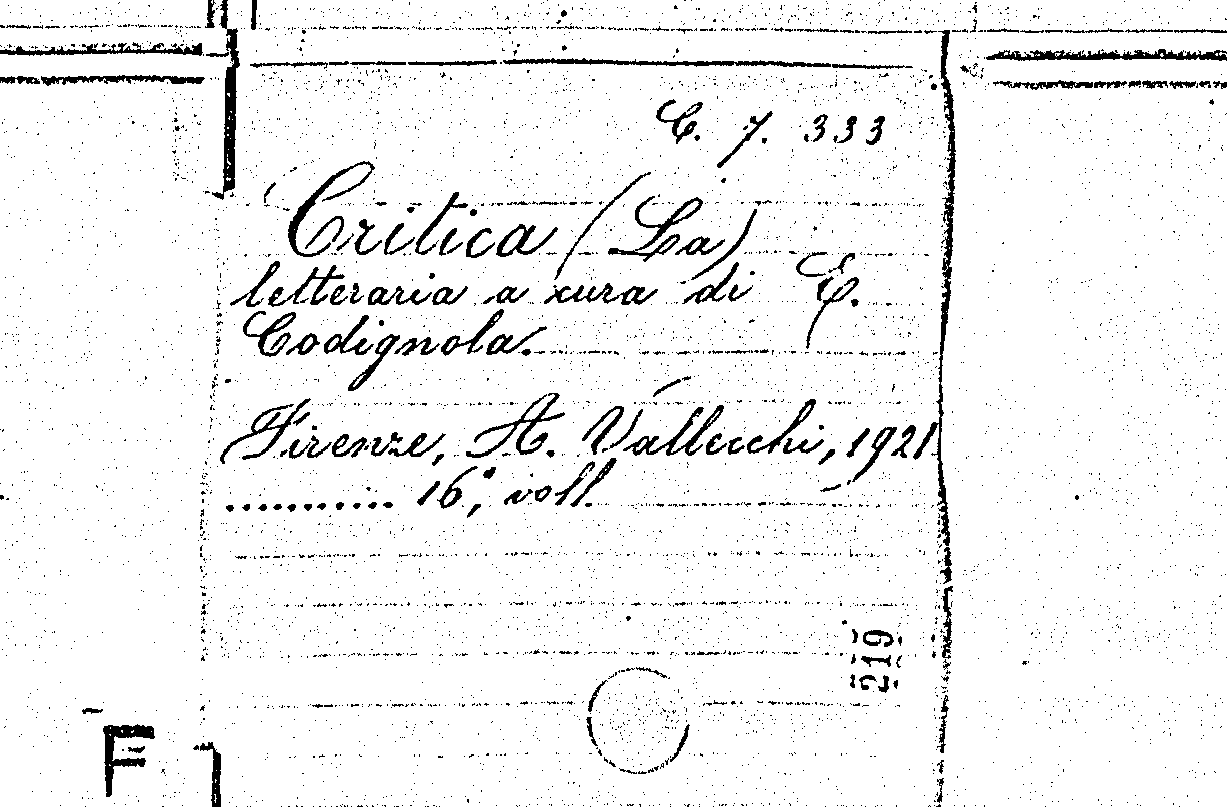 C. 7. 333
Critica (La)
letteraria a cura di E.
Codignola.
Firenze, A. Vallecchi, 1921
........... 16°, voll.
219
F